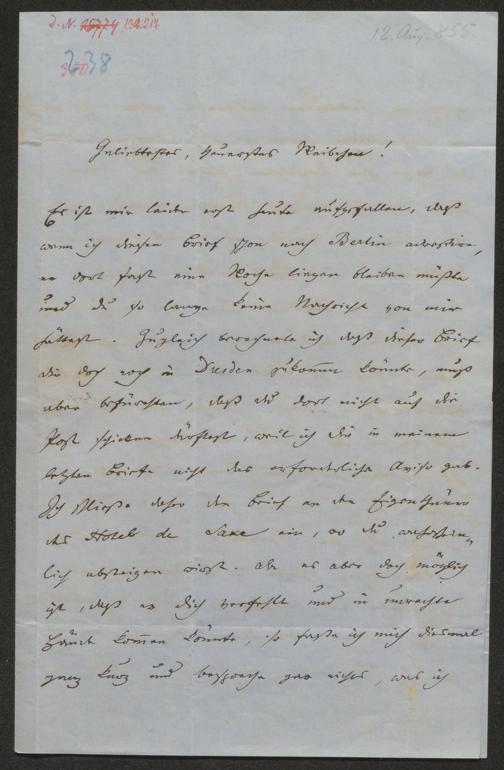 J. N. 18774 132.217
12. Aug. 855
238
Geliebtestes, theuerstes Weibchen!
Es ist mir leider erst heute aufgefallen, daß
wenn ich diesen Brief schon nach Berlin adressire,
er dort fast eine Woche liegen bleiben müßte
und du so lange keine Nachricht von mir
hättest. Zugleich berechnete ich daß dieser Brief
dir doch noch in Dresden zukommen könnte, muß
aber befürchten, daß du dort nicht auf die
Post schicken dürftest, weil ich dir in meinem
letzten Briefe nicht das erforderliche Aviso gab.
Ich schließe daher den Brief an den Eigenthümer
des Hotel de Saxe ein, wo du wahrschein-
lich absteigen wirst. Da es aber doch möglich
ist, daß er dich verfehlt und in unrechte
Hände kommen könnte, so fasse ich mich diesmal
ganz kurz und bespreche gar nichts, was ich